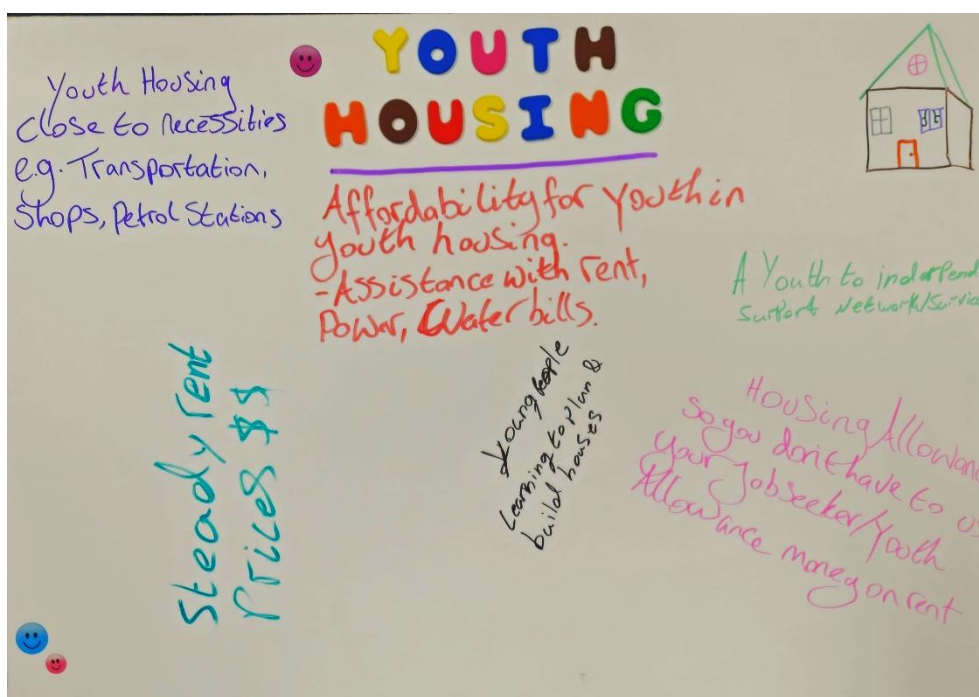 YOUTH
HOUSING
Youth Housing
close to necessities
e.g. Transportation,
Shops, Petrol Stations
Affordability for youth in
youth housing.
-Assistance with rent,
Power, Water bills.
A Youth to independ
Support Network/Servic
Steady rent
Prices $$
Young people
Learning to plan &
build houses
Housing Allowanc
so you don't have to us
your Jobseeker/Youth
Allowance money on rent